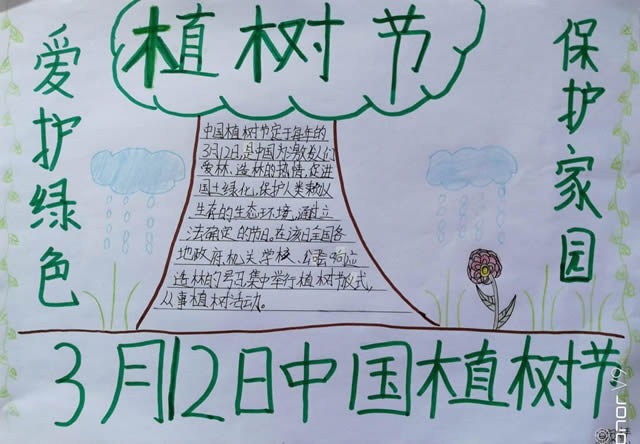 植树节
爱护绿色
保护家园
中国植树节定于每年的
3月12日,是中国为激数人们
爱林、造林的热情,促进
国土绿化,保护人类赖以
生存的生态环境,通过立
法确定的节日。在该日全国各
地政府机关学校、公会响应
造林的号召集中举行植树节仪式,
从事植树活动。
3月12日中国植树节
honor V9